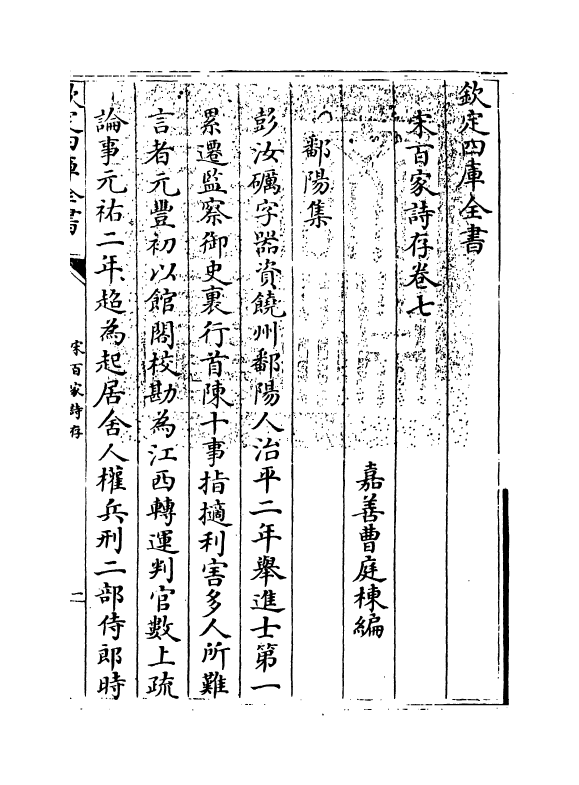 欽定四庫全書
宋百家詩存卷七
嘉善曹庭棟編
鄱陽集
彭汝礪字器資饒州鄱陽人治平二年舉進士第一
累遷監察御史裏行首陳十事指擿利害多人所難
言者元豐初以館閣校勘為江西轉運判官數上疏
論事元祐二年超為起居舍人權兵刑二部侍郎時
欽定四庫全書
宋百家詩存